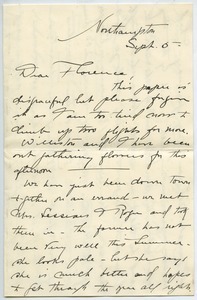 Northampton
Sept. 5-
Dear Florence!
This paper is
disgraceful but please forgive
it as I am too tired now to
climb up two flights for more.
Williston and I have been
out gathering flowers for this
afternoon
We have just been down town
together on an errand - we met
Mrs. Sessions & and told
them in - the former has not
been very well this Summer
she looks pale - but she says
she is much better and hopes
to get through the year all right